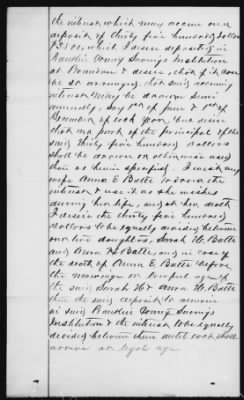 the interest which may accrue on a
deposit of thirty five hundred dollars
which I desire deposited in
Rankin County Savings Institution
at Brandon & desire, that it can
be so arranged, that said accruing
interest may be drawn semi
annually, say 1st of June & 1st of
December of each year, but desire
that no part of the principal of the
said thirty five hundred dollars
shall be drawn or otherwise used
than as herein specified. I wish my
wife Anna E. Batte to draw the
interest & use it as she wishes
during her life, and at her death
I desire the thirty five hundred
dollars to be equally divided between
our two daughters, Sarah W. Batte
and Anna H. Batte, and in case of
the death of Anna E Batte before
the marriage or lawful age of
the said Sarah W & Anna H. Batte
then the said deposit to remain
in said Rankin County Savings
Institution & the interest to be equally
divided between them until each shall
arrive at legal age